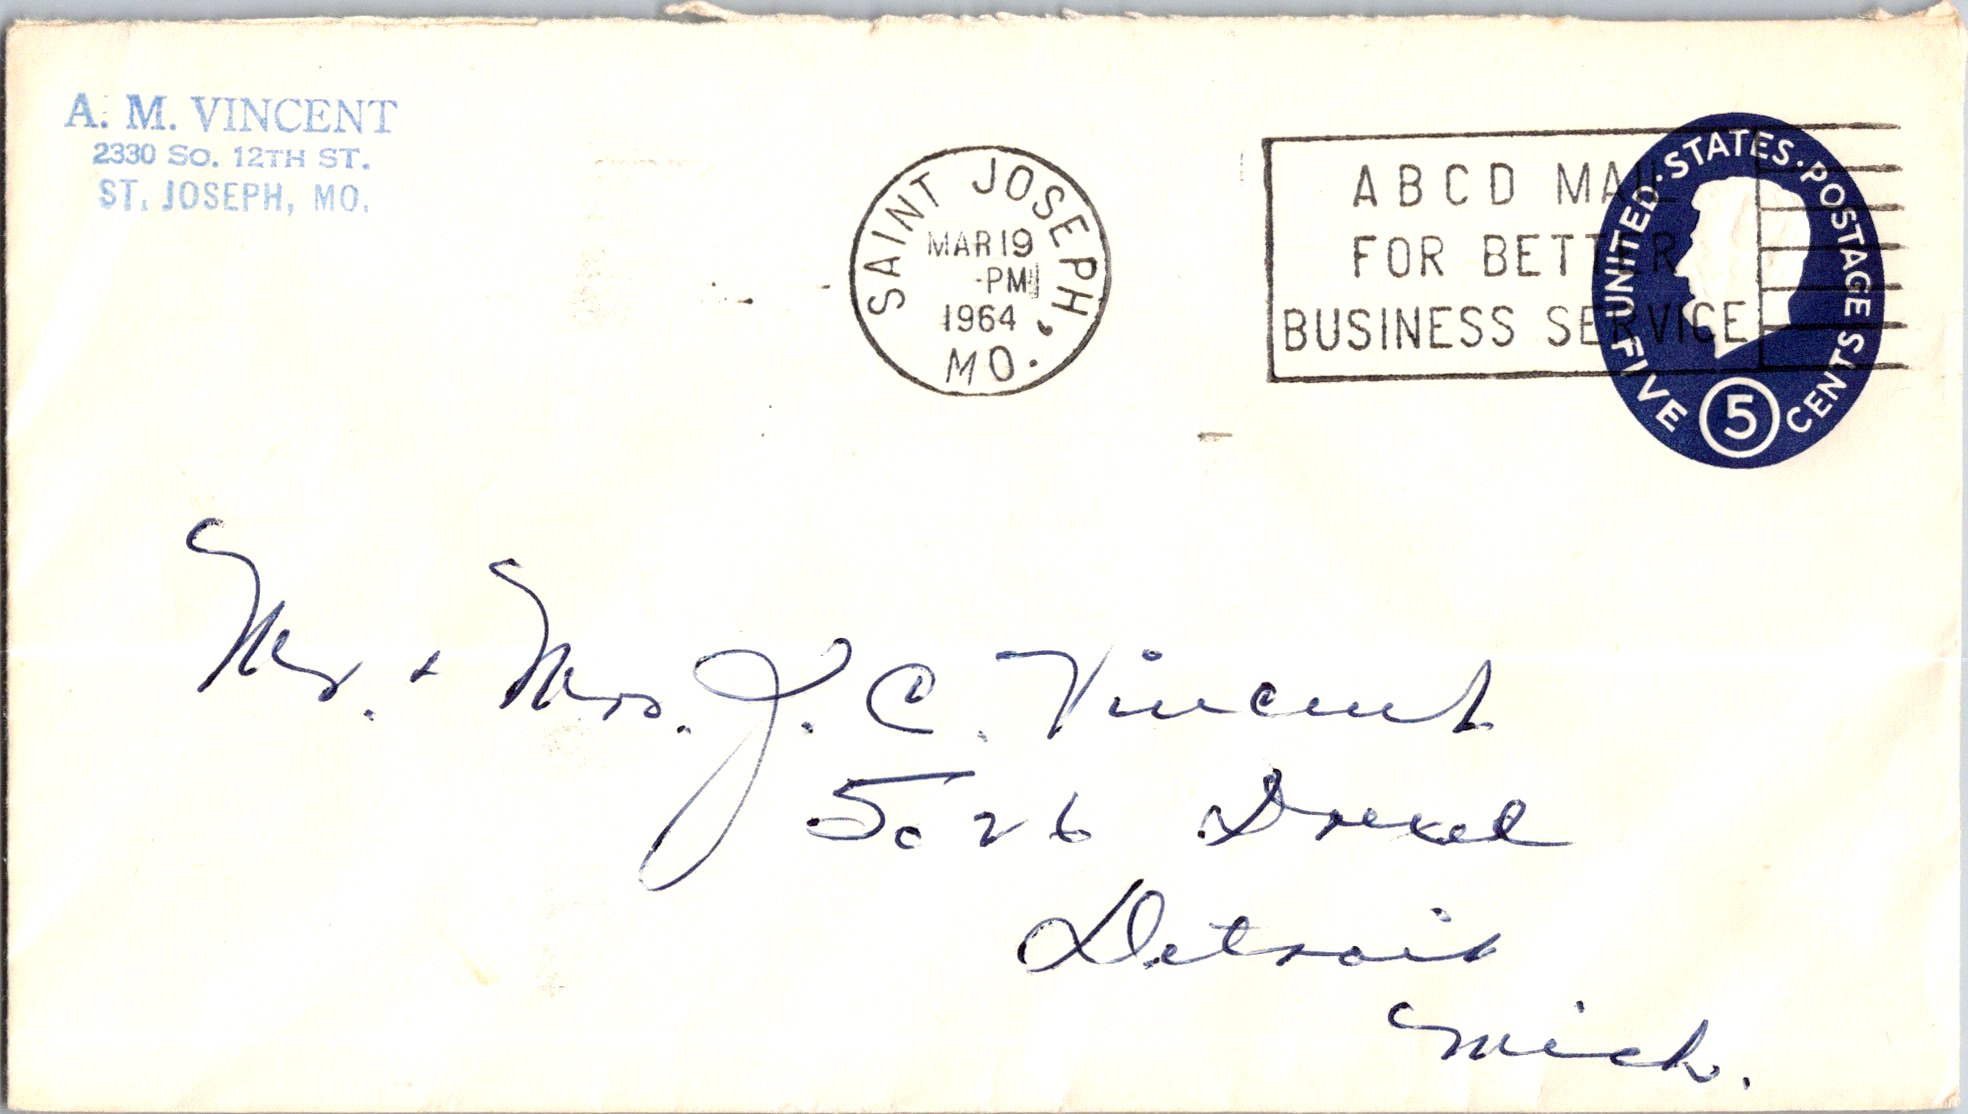 A. M. VINCENT
2330 SO. 12TH ST.
ST. JOSEPH, MO.
SAINT JOSEPH, MO.
MAR 19
-PM
1964
ABCD MAIL
FOR BETTER
BUSINESS SERVICE
UNITED·STATES·POSTAGE
FIVE 5 CENTS
Mr. + Mrs. J. C. Vincent
5026 Drexel
Detroit
Mich.